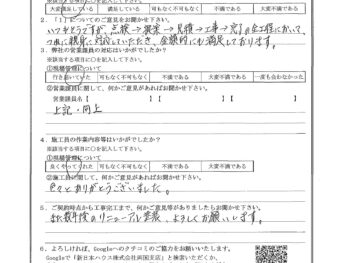 大変満足している 満足している 可もなく不可もなく 不満である 大変不満である
2.「1」についてのご意見をお聞かせ下さい。
いつもそうですが、点検→提案→見積→工事→完了の全工程において、
つねに親身に対応していただき、金額的にも満足しております。
3. 弊社の営業課員の対応はいかがでしたか?
※該当する項目に○を記入して下さい。
①現場管理について
行き届いていた 可もなく不可もなく 不満である 大変不満である 一度も会わなかった
②営業課員に関して、何かご意見がありましたらお聞かせ下さい。
営業課員名【 】【 】
上記・同上
4. 施工員の作業内容等はいかがでしたか?
※該当する項目に○を記入して下さい。
①現場管理について
良くやってくれた 可もなく不可もなく 不満である 大変不満である
②施工員に関して、何かご意見がありましたらお聞かせ下さい。
色々とありがとうございました。
5. ご契約時点から工事完工まで、何かご意見等がありましたらお聞かせ下さい。
数年後のリニューアル塗装、よろしくお願いします。
6. よろしければ、Googleへのクチコミのご協力をお願いいたします。
Googleで「新日本ハウス株式会社両国支店」と検索いただくか、